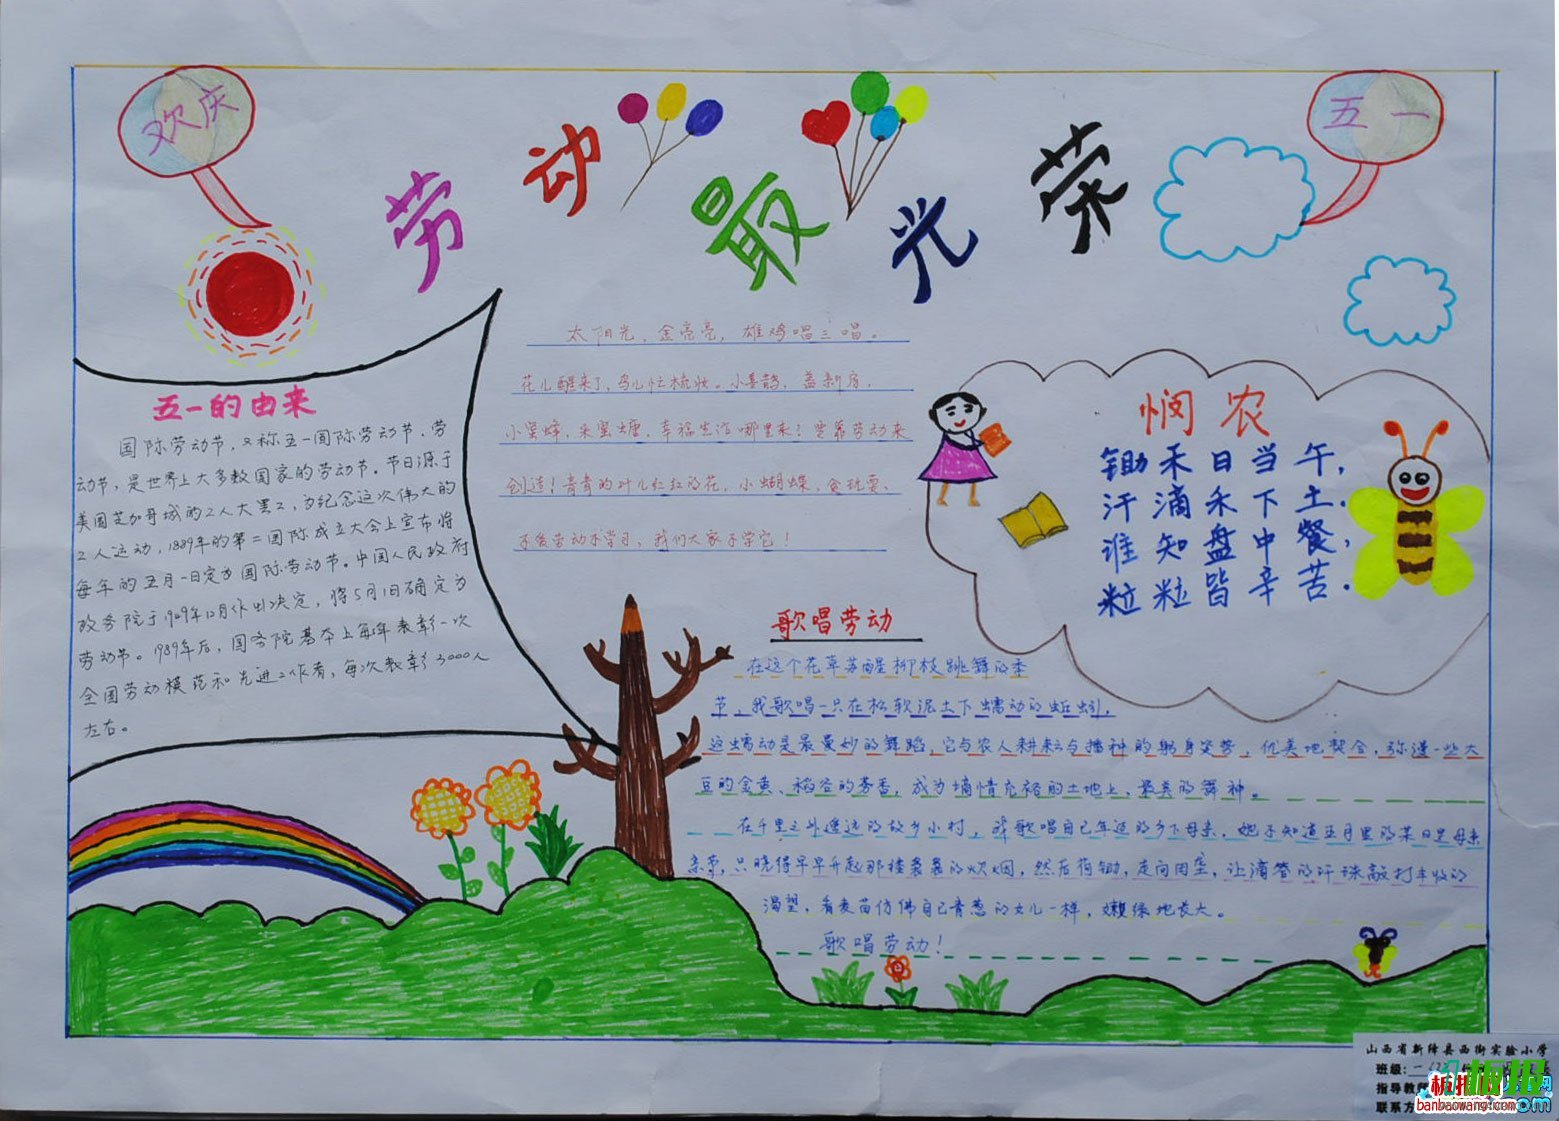 欢庆
五一
劳动最光荣
五一的由来
国际劳动节,又称五一国际劳动节,劳
动节,是世界上大多数国家的劳动节。节日源于
美国芝加哥城的工人大罢工,为纪念这次伟大的
工人运动,1889年的第二国际成立大会上宣布将
每年的五月一日定为国际劳动节。中国人民政府
政务院于1949年12月作出决定,将5月1日确定为
劳动节。1989年后,国务院基本上每5年表彰一次
全国劳动模范和先进工作者,每次表彰3000人
左右。
太阳光,金亮亮,雄鸡唱三唱。
花儿醒来了,鸟儿忙梳妆。小喜鹊,盖新房,
小蜜蜂,采蜜糖,幸福生活哪里来?要靠劳动来
创造!青青的叶儿红红的花,小蝴蝶,贪玩耍、
不爱劳动不学习,我们大家不学它!
悯农
锄禾日当午,
汗滴禾下土.
谁知盘中餐,
粒粒皆辛苦.
歌唱劳动
在这个花草苏醒柳枝跳舞的季
节,我歌唱一只在松软泥土下蠕动的蚯蚓,
这蠕动是最曼妙的舞蹈,它与农人耕耘与播种的躬身姿势,优美地契合,弥漫一些大
豆的金黄、稻谷的芳香,成为墒情充裕的土地上、最美的舞神。
在千里之外遥远的故乡小村,我歌唱自己年迈的乡下母亲,她不知道五月里的某日是母亲
亲节,只晓得早早升起那楼袅袅的炊烟,然后荷锄,走向田垄,让滴答的汗珠敲打丰收的
渴望,看麦苗仿佛自己青葱的女儿一样,嫩绿地长大。
歌唱劳动!
山西省新绛县西街实验小学
班级:
指导教师
联系方
板报网
banbaowang.com